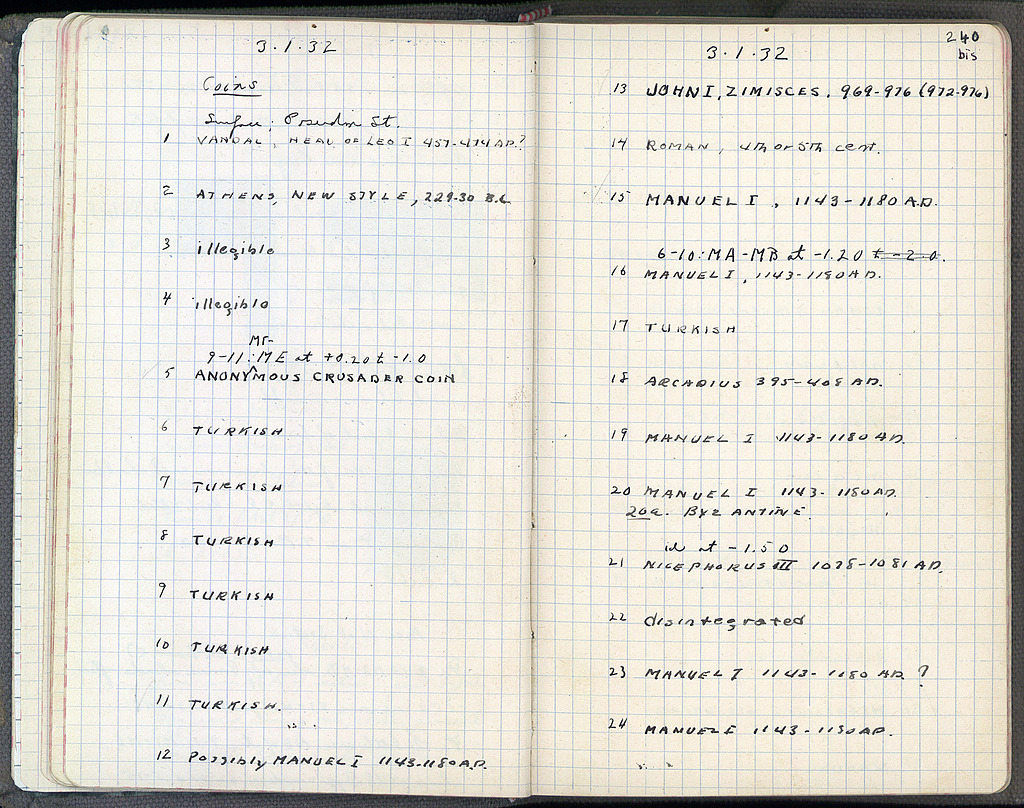 3.1.32
Coins
Surface, Poseidon St.
1 VANDAL, HEAD OF LEO I 457-474 AD.?
2 ATHENS, NEW STYLE, 229-30 B.C.
3 illegible
4 illegible
9-11: ME at +0.20 t -1.0
5 ANONYMOUS CRUSADER COIN
6 TURKISH
7 TURKISH
8 TURKISH
9 TURKISH
10 TURKISH
11 TURKISH.
12 Possibly MANUEL I 1143-1180 A.D.
240
bis
3.1.32
13 JOHN I, ZIMISCES. 969-976 (972-976)
14 ROMAN, 4th or 5th cent.
15 MANUEL I, 1143-1180 A.D.
6-10: MA-MB at -1.20 t -2.0.
16 MANUEL I, 1143-1180 AD.
17 TURKISH
18 ARCADIUS 395-408 AD.
19 MANUEL I 1143-1180 AD.
20 MANUEL I 1143-1180 AD.
20a. BYZANTINE
id at -1.50
21 NICEPHORUS III 1078-1081 AD.
22 disintegrated
23 MANUEL I 1143-1180 AD. ?
24 MANUEL I 1143-1180 AD.